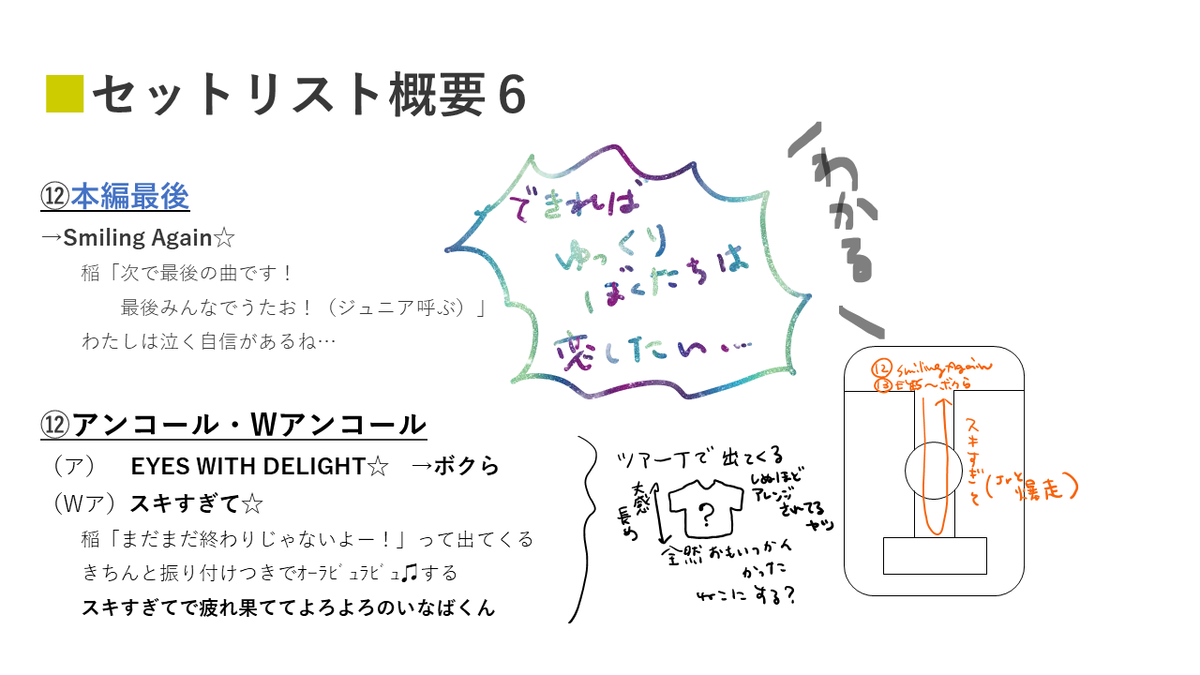 ■セットリスト概要6
⑫本編最後
→Smiling Again☆
稲「次で最後の曲です！
最後みんなでうたお！（ジュニア呼ぶ）」
わたしは泣く自信があるね…
できれば
ゆっくり
ぼくたちは
恋したい…
\わかる/
⑫アンコール・Wアンコール
（ア）　EYES WITH DELIGHT☆　→ボクら
（Wア）スキすぎて☆
稲「まだまだ終わりじゃないよー！」って出てくる
きちんと振り付けつきでｵｰﾗﾋﾞｭﾗﾋﾞｭ♫する
スキすぎてで疲れ果ててよろよろのいなばくん
ツアーTで出てくる
丈感
長め
?
しぬほど
アレンジ
されてる
ヤツ
全然おもいつかん
かった
ねこにする？
⑫ smiling Again
⑬ EYES〜ボクら
スキすぎて
(Jrと
爆走)